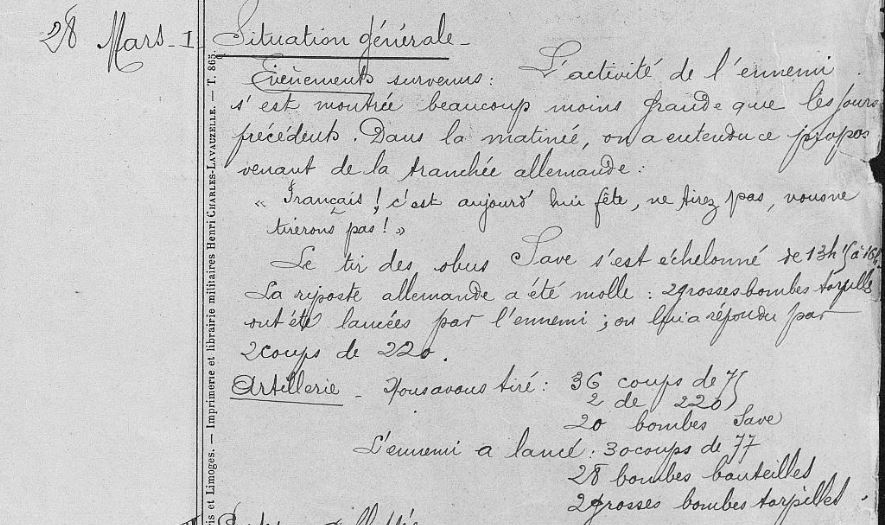 28 Mars - I - Situation générale -
Evènements survenus : L'activité de l'ennemi
s'est montrée beaucoup moins grande que les jours
précédents. Dans la matinée, on a entendu ce propos
venant de la tranchée allemande :
« Français ! c'est aujourd'hui fête, ne tirez pas, nous ne
tirerons pas ! »
Le tir des obus Save s'est échelonné de 13h15 à 16h.
La riposte allemande a été molle : 2 grosses bombes torpilles
ont été lancées par l'ennemi ; on lui a répondu par
2 coups de 220.
Artillerie - Nous avons tiré : 36 coups de 75
2 de 220
20 bombes Save
L'ennemi a lancé : 30 coups de 77
28 bombes bouteilles
2 grosses bombes torpilles.
is et Limoges. — Imprimerie et librairie militaires Henri CHARLES-LAVAUZELLE. — T. 865.